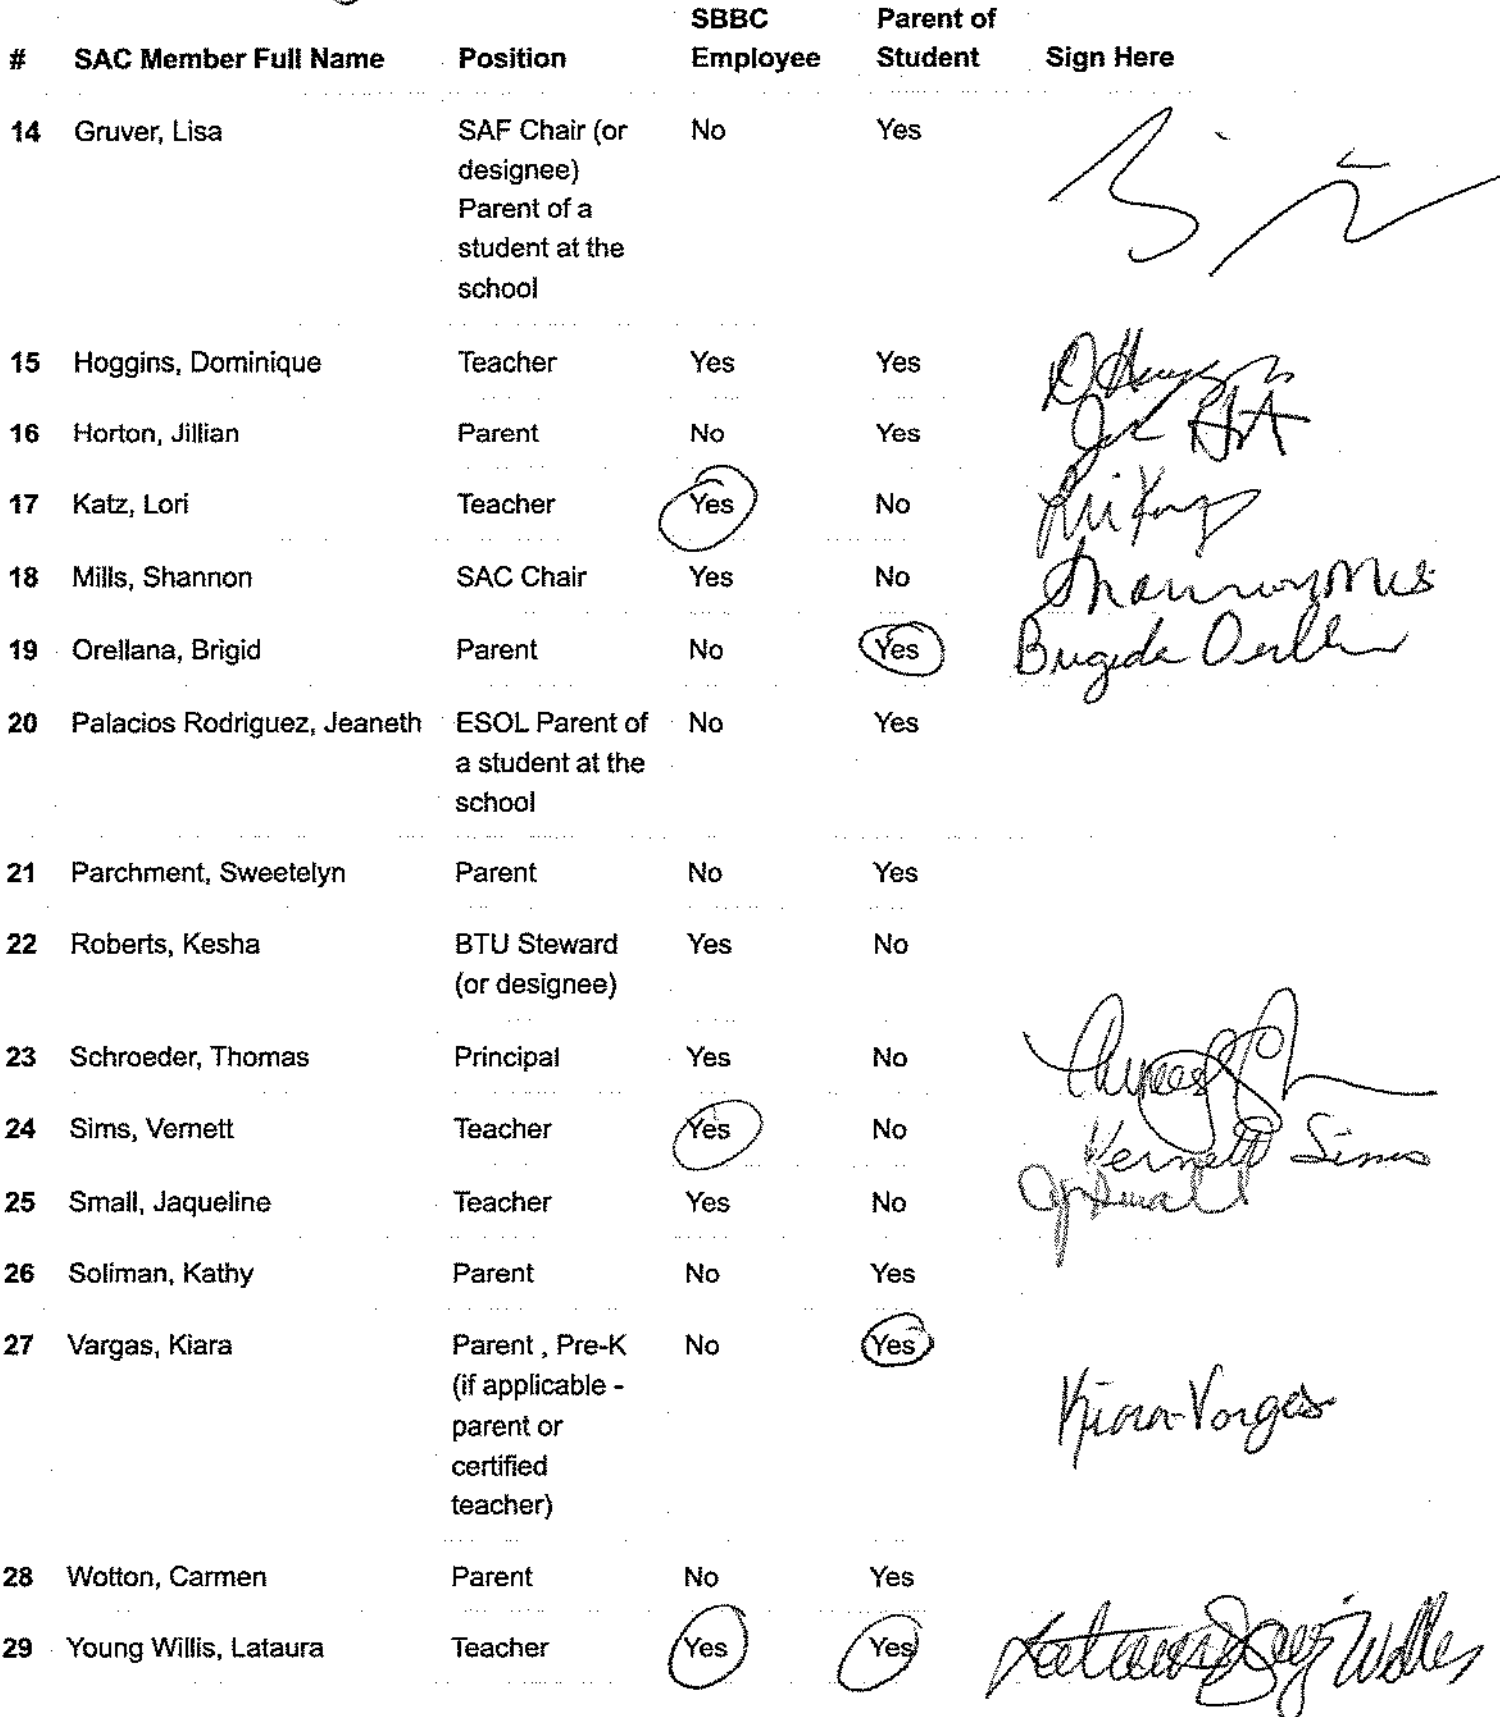 # SAC Member Full Name Position SBBC Employee Parent of Student Sign Here
14 Gruver, Lisa SAF Chair (or No Yes
designee)
Parent of a
student at the
school
15 Hoggins, Dominique Teacher Yes Yes
16 Horton, Jillian Parent No Yes
17 Katz, Lori Teacher Yes No
18 Mills, Shannon SAC Chair Yes No
19 Orellana, Brigid Parent No Yes
20 Palacios Rodriguez, Jeaneth ESOL Parent of No Yes
a student at the
school
21 Parchment, Sweetelyn Parent No Yes
22 Roberts, Kesha BTU Steward Yes No
(or designee)
23 Schroeder, Thomas Principal Yes No
24 Sims, Vernett Teacher Yes No Vernett Sims
25 Small, Jaqueline Teacher Yes No
26 Soliman, Kathy Parent No Yes
27 Vargas, Kiara Parent , Pre-K No Yes
(if applicable -
parent or Kiara Vargas
certified
teacher)
28 Wotton, Carmen Parent No Yes
29 Young Willis, Lataura Teacher Yes Yes